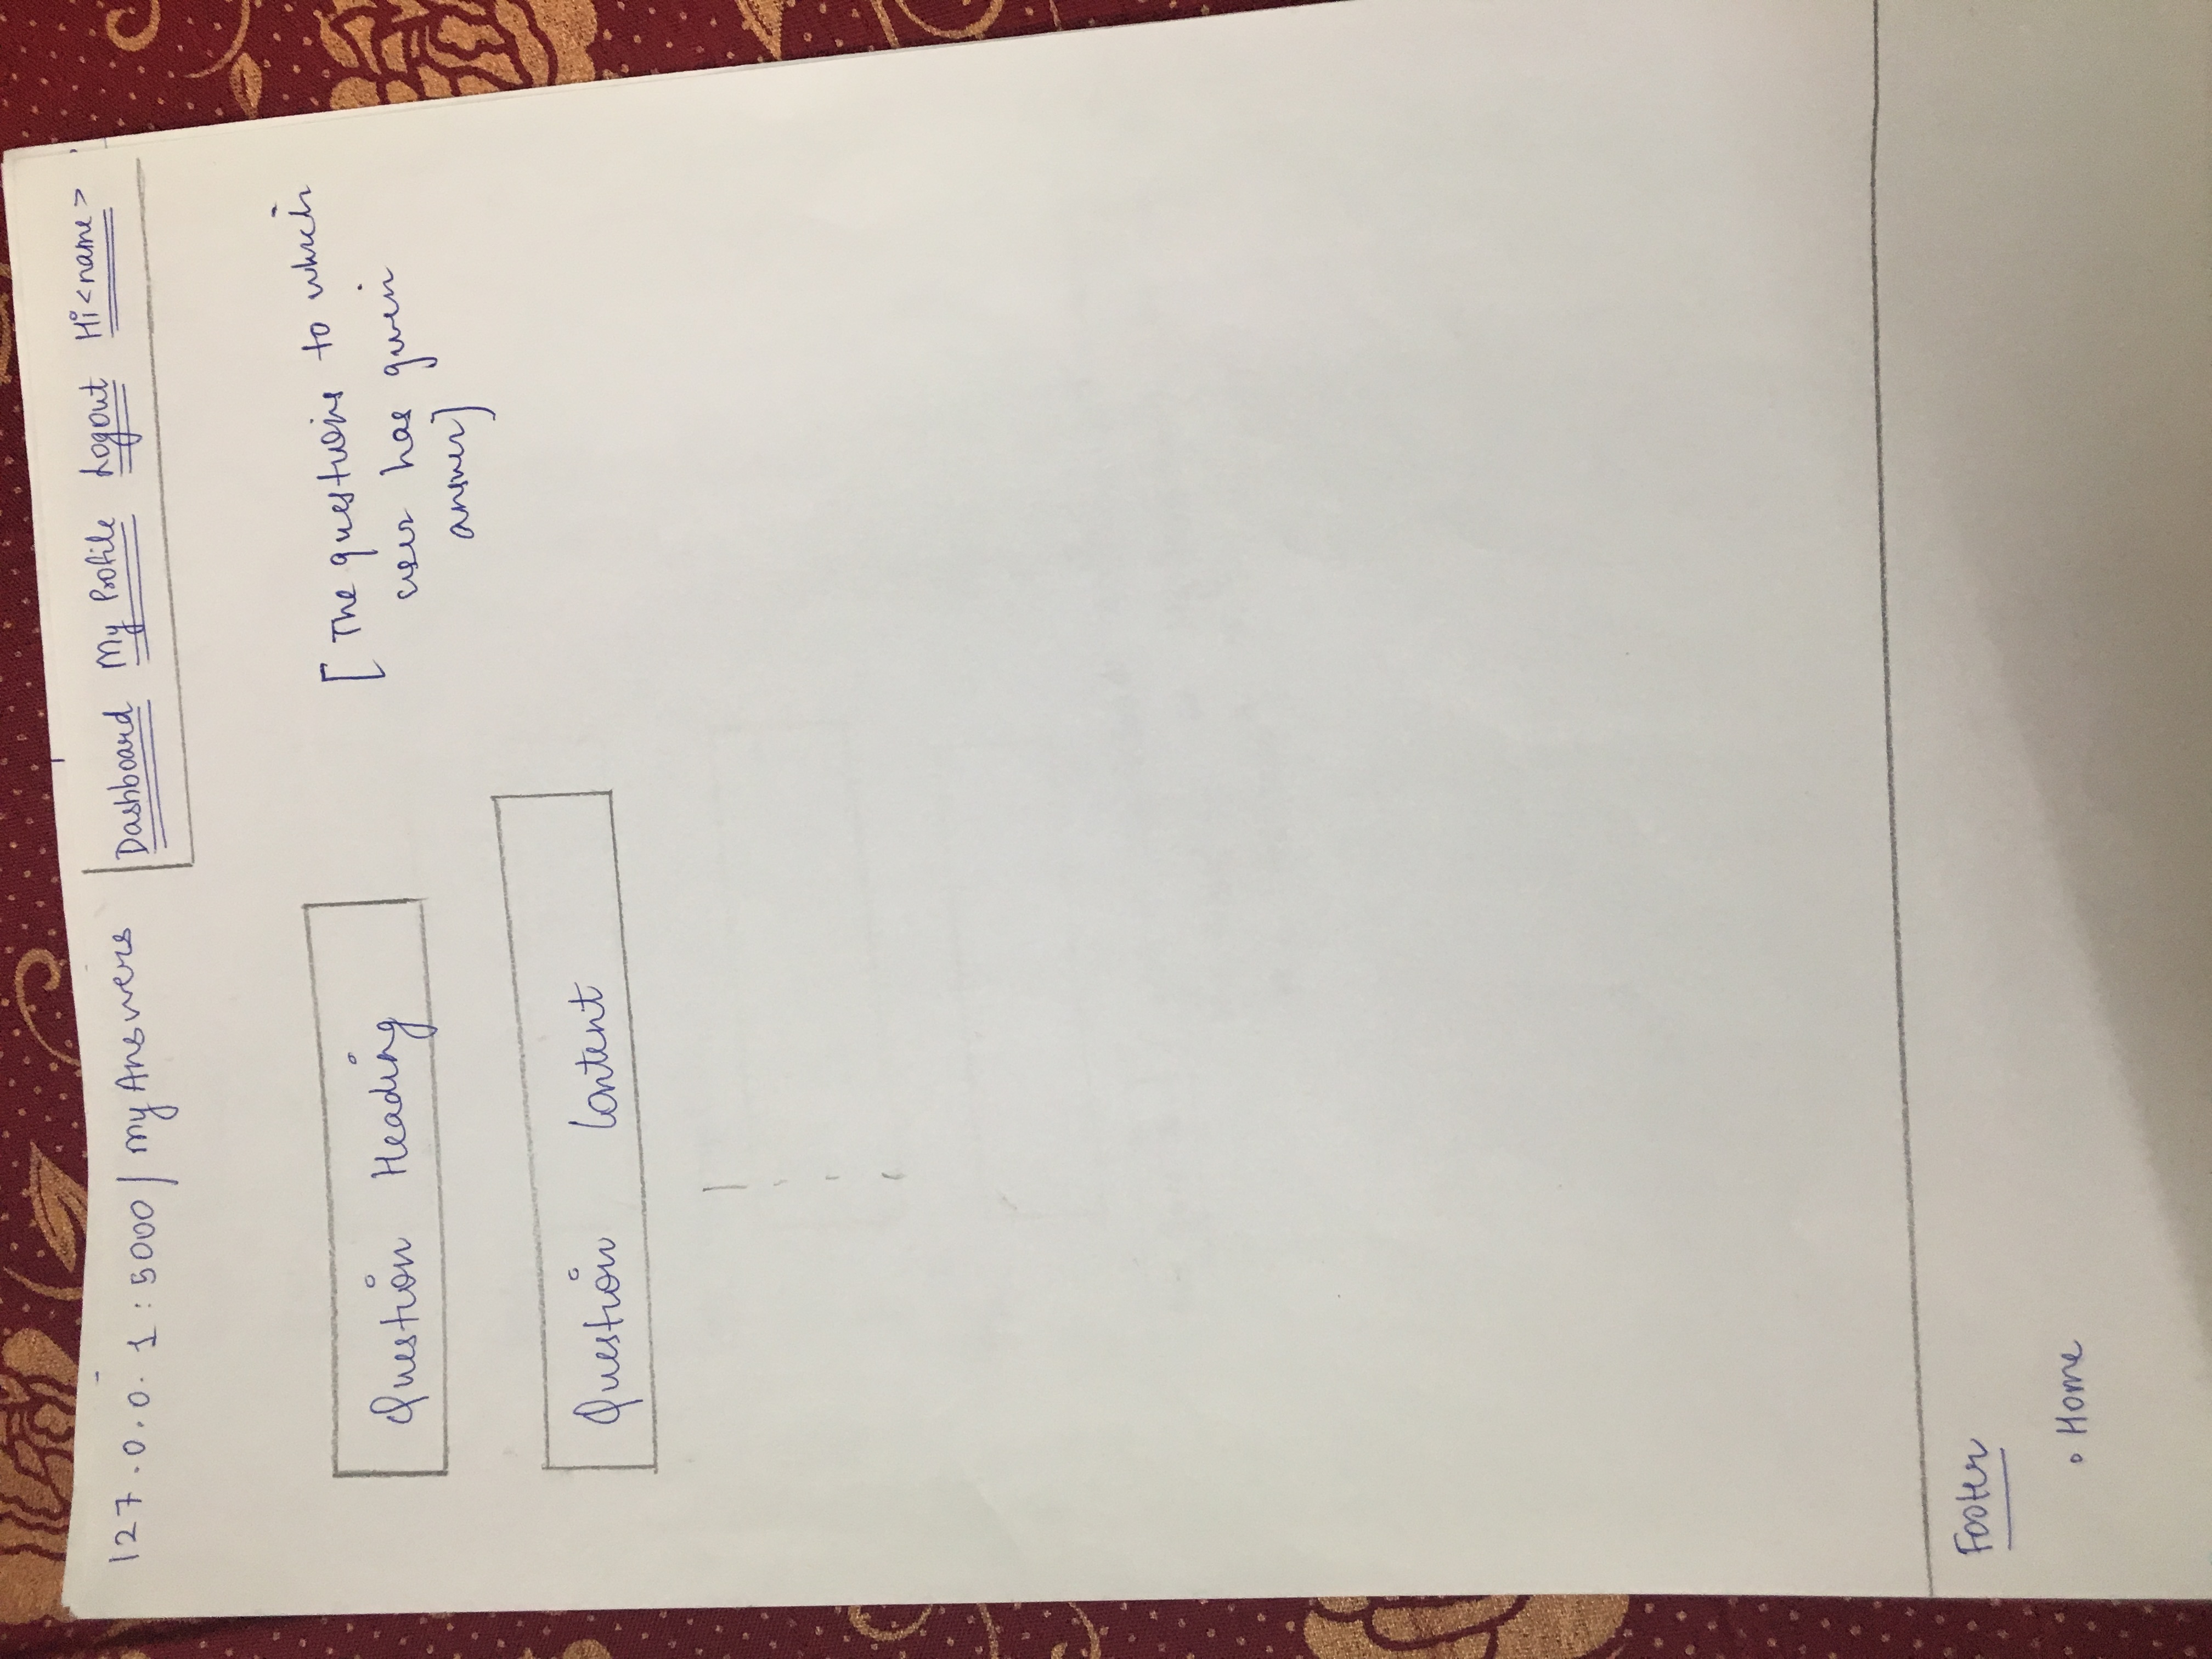 127.0.0.1:5000/myAnswers
Dashboard My Profile Logout Hi<name>
Question Heading
[The questions to which
user has given
answer]
Question Content
Footer
• Home